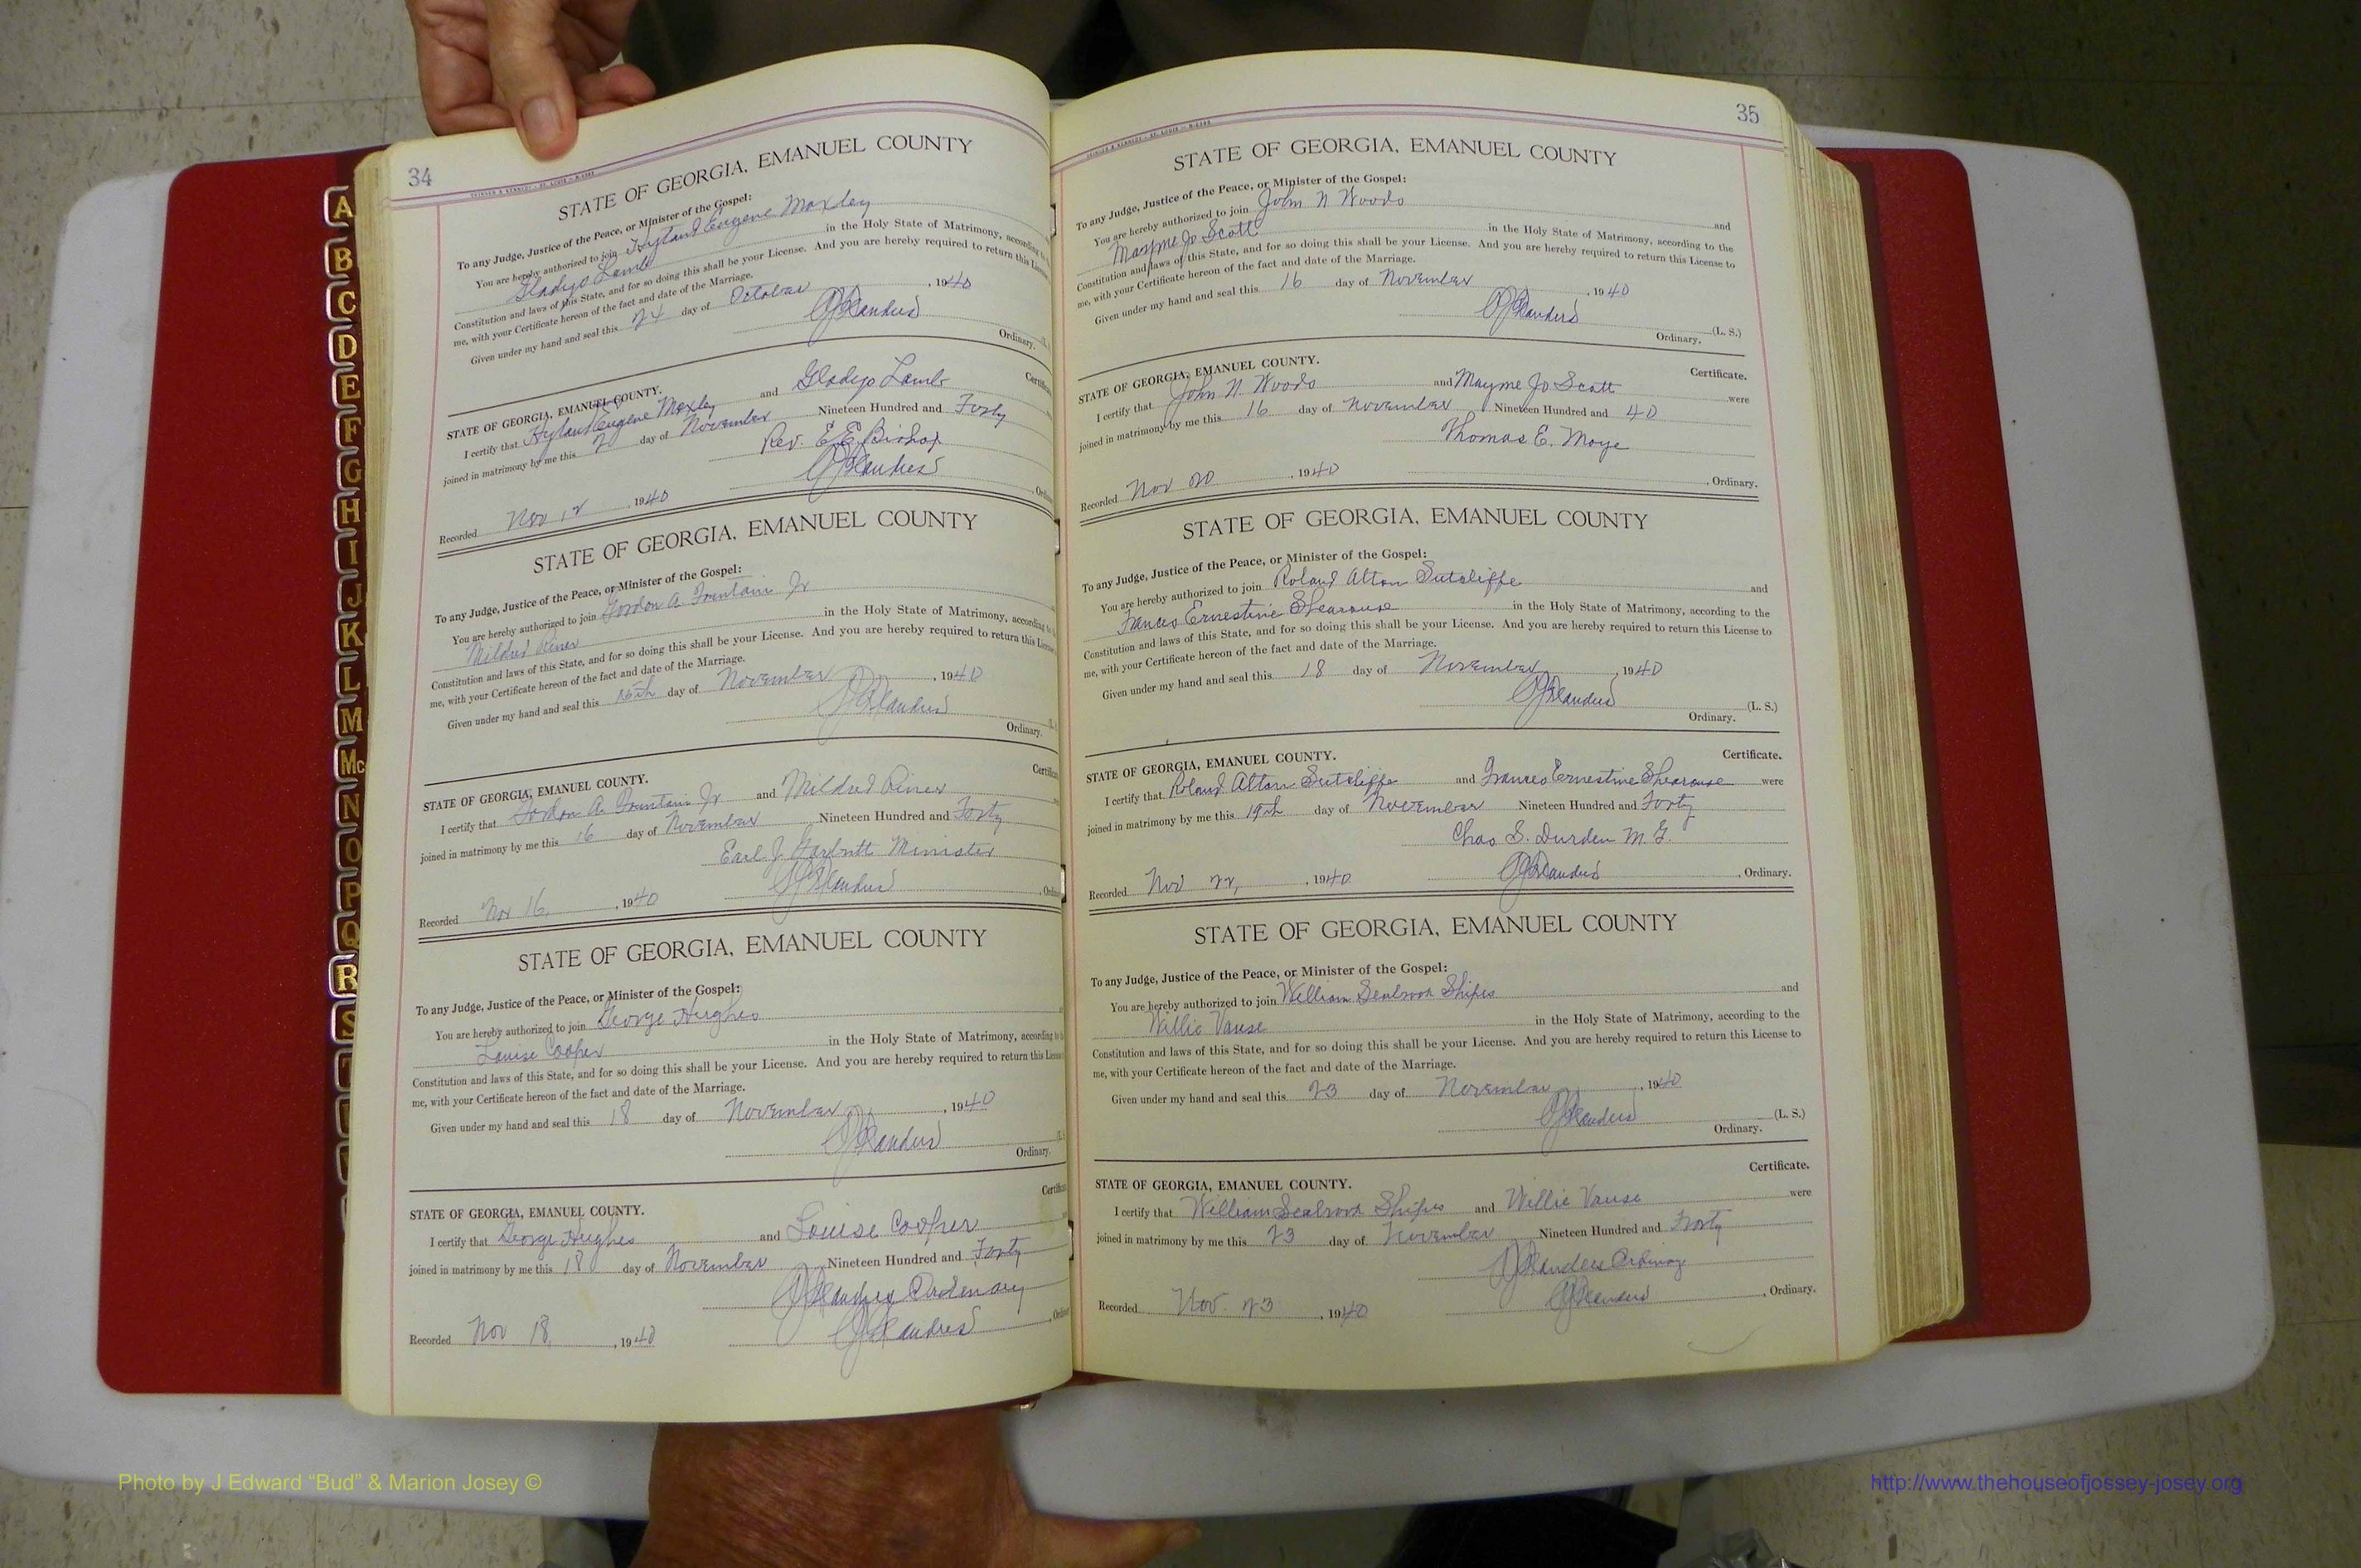 34
STATE OF GEORGIA, EMANUEL COUNTY
To any Judge, Justice of the Peace, or Minister of the Gospel:
You are hereby authorized to join Hyland Eugene Moxley
Gladys Lamb in the Holy State of Matrimony, according to
Constitution and laws of this State, and for so doing this shall be your License. And you are hereby required to return this License
me, with your Certificate hereon of the fact and date of the Marriage.
Given under my hand and seal this 24 day of October, 1940
Ordinary.
Certific
STATE OF GEORGIA, EMANUEL COUNTY.
I certify that Hyland Eugene Moxley and Gladys Lamb
joined in matrimony by me this 2 day of November Nineteen Hundred and Forty
Rev. E E Bishop
Recorded Nov 12, 1940
STATE OF GEORGIA, EMANUEL COUNTY
To any Judge, Justice of the Peace, or Minister of the Gospel:
You are hereby authorized to join Gordon A. Fountain Jr
Mildred Riner in the Holy State of Matrimony, according to
Constitution and laws of this State, and for so doing this shall be your License. And you are hereby required to return this License
me, with your Certificate hereon of the fact and date of the Marriage.
Given under my hand and seal this 15th day of November, 1940
Ordinary.
Certific
STATE OF GEORGIA, EMANUEL COUNTY.
I certify that Gordon A. Fountain Jr and Mildred Riner
joined in matrimony by me this 16 day of November Nineteen Hundred and Forty
Earl J. Garbutt Minister
Recorded Nov 16, 1940
STATE OF GEORGIA, EMANUEL COUNTY
To any Judge, Justice of the Peace, or Minister of the Gospel:
You are hereby authorized to join George Hughes
Louise Cooper in the Holy State of Matrimony, according to
Constitution and laws of this State, and for so doing this shall be your License. And you are hereby required to return this License
me, with your Certificate hereon of the fact and date of the Marriage.
Given under my hand and seal this 18 day of November, 1940
Ordinary.
Certific
STATE OF GEORGIA, EMANUEL COUNTY.
I certify that George Hughes and Louise Cooper
joined in matrimony by me this 18 day of November, Nineteen Hundred and Forty
Ordinary
Recorded Nov 18, 1940
35
STATE OF GEORGIA, EMANUEL COUNTY
To any Judge, Justice of the Peace, or Minister of the Gospel:
You are hereby authorized to join John N Woods and
Mayme Jo Scott in the Holy State of Matrimony, according to the
Constitution and laws of this State, and for so doing this shall be your License. And you are hereby required to return this License to
me, with your Certificate hereon of the fact and date of the Marriage.
Given under my hand and seal this 16 day of November, 1940
(L. S.)
Ordinary.
Certificate.
STATE OF GEORGIA, EMANUEL COUNTY.
I certify that John N. Woods and Mayme Jo Scott were
joined in matrimony by me this 16 day of November Nineteen Hundred and 40
Thomas E. Moye
Recorded Nov 20, 1940, Ordinary.
STATE OF GEORGIA, EMANUEL COUNTY
To any Judge, Justice of the Peace, or Minister of the Gospel:
You are hereby authorized to join Roland Alton Sutcliffe and
Frances Ernestine Shearouse in the Holy State of Matrimony, according to the
Constitution and laws of this State, and for so doing this shall be your License. And you are hereby required to return this License to
me, with your Certificate hereon of the fact and date of the Marriage.
Given under my hand and seal this 18 day of November, 1940
(L. S.)
Ordinary.
Certificate.
STATE OF GEORGIA, EMANUEL COUNTY.
I certify that Roland Alton Sutcliffe and Frances Ernestine Shearouse were
joined in matrimony by me this 19th day of November Nineteen Hundred and Forty
Chas S. Durden M. G.
Recorded Nov 22, 1940, Ordinary.
STATE OF GEORGIA, EMANUEL COUNTY
To any Judge, Justice of the Peace, or Minister of the Gospel:
You are hereby authorized to join William Seabrook Shipes and
Willie Vause in the Holy State of Matrimony, according to the
Constitution and laws of this State, and for so doing this shall be your License. And you are hereby required to return this License to
me, with your Certificate hereon of the fact and date of the Marriage.
Given under my hand and seal this 23 day of November, 1940
(L. S.)
Ordinary.
Certificate.
STATE OF GEORGIA, EMANUEL COUNTY.
I certify that William Seabrook Shipes and Willie Vause were
joined in matrimony by me this 23 day of November Nineteen Hundred and Forty
Ordinary
Recorded Nov. 23, 1940, Ordinary.
A
B
C
D
E
F
G
H
I
J
K
L
M
Mc
N
O
P
Q
R
S
Photo by J Edward "Bud" & Marion Josey ©
http://www.thehouseofjossey-josey.org